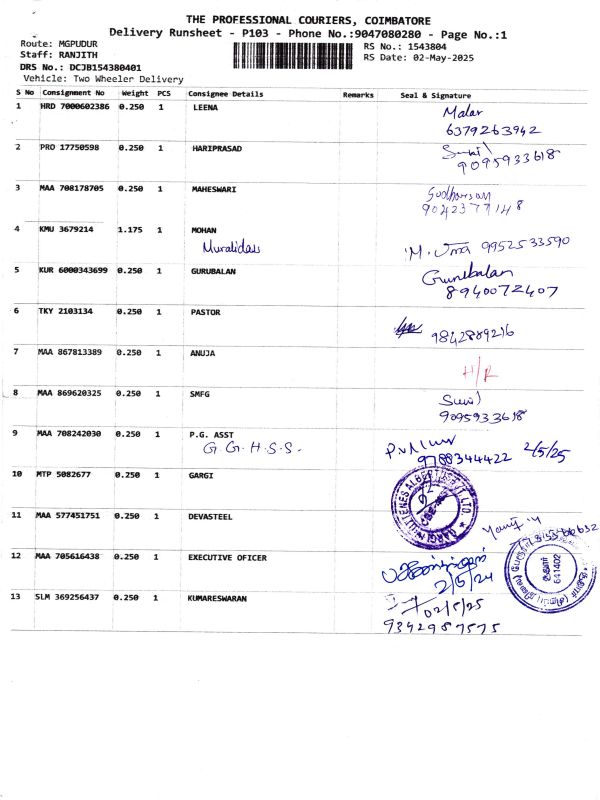 THE PROFESSIONAL COURIERS, COIMBATORE
Delivery Runsheet - P103 - Phone No.:9047080280 - Page No.:1
Route: MGPUDUR
RS No.: 1543804
Staff: RANJITH
RS Date: 02-May-2025
DRS No.: DCJB154380401
Vehicle: Two Wheeler Delivery
S No Consignment No Weight PCS Consignee Details Remarks Seal & Signature
1 HRD 7000602386 0.250 1 LEENA
Malar
6379263942
2 PRO 17750598 0.250 1 HARIPRASAD
9095933618
3 MAA 708178705 0.250 1 MAHESWARI
Sudharsan
9042377148
4 KMU 3679214 1.175 1 MOHAN
Muralidas
M. Uma 9952533590
5 KUR 6000343699 0.250 1 GURUBALAN
Gurubalan
8940072407
6 TKY 2103134 0.250 1 PASTOR
9842889216
7 MAA 867813389 0.250 1 ANUJA
H/R
8 MAA 869620325 0.250 1 SMFG
9095933618
9 MAA 708242030 0.250 1 P.G. ASST
G. G. H. S. S.
9788344422 2/5/25
10 MTP 5082677 0.250 1 GARGI
11 MAA 577451751 0.250 1 DEVASTEEL
12 MAA 705616438 0.250 1 EXECUTIVE OFICER
2/5/24
641402
13 SLM 369256437 0.250 1 KUMARESWARAN
02/5/25
9342987575